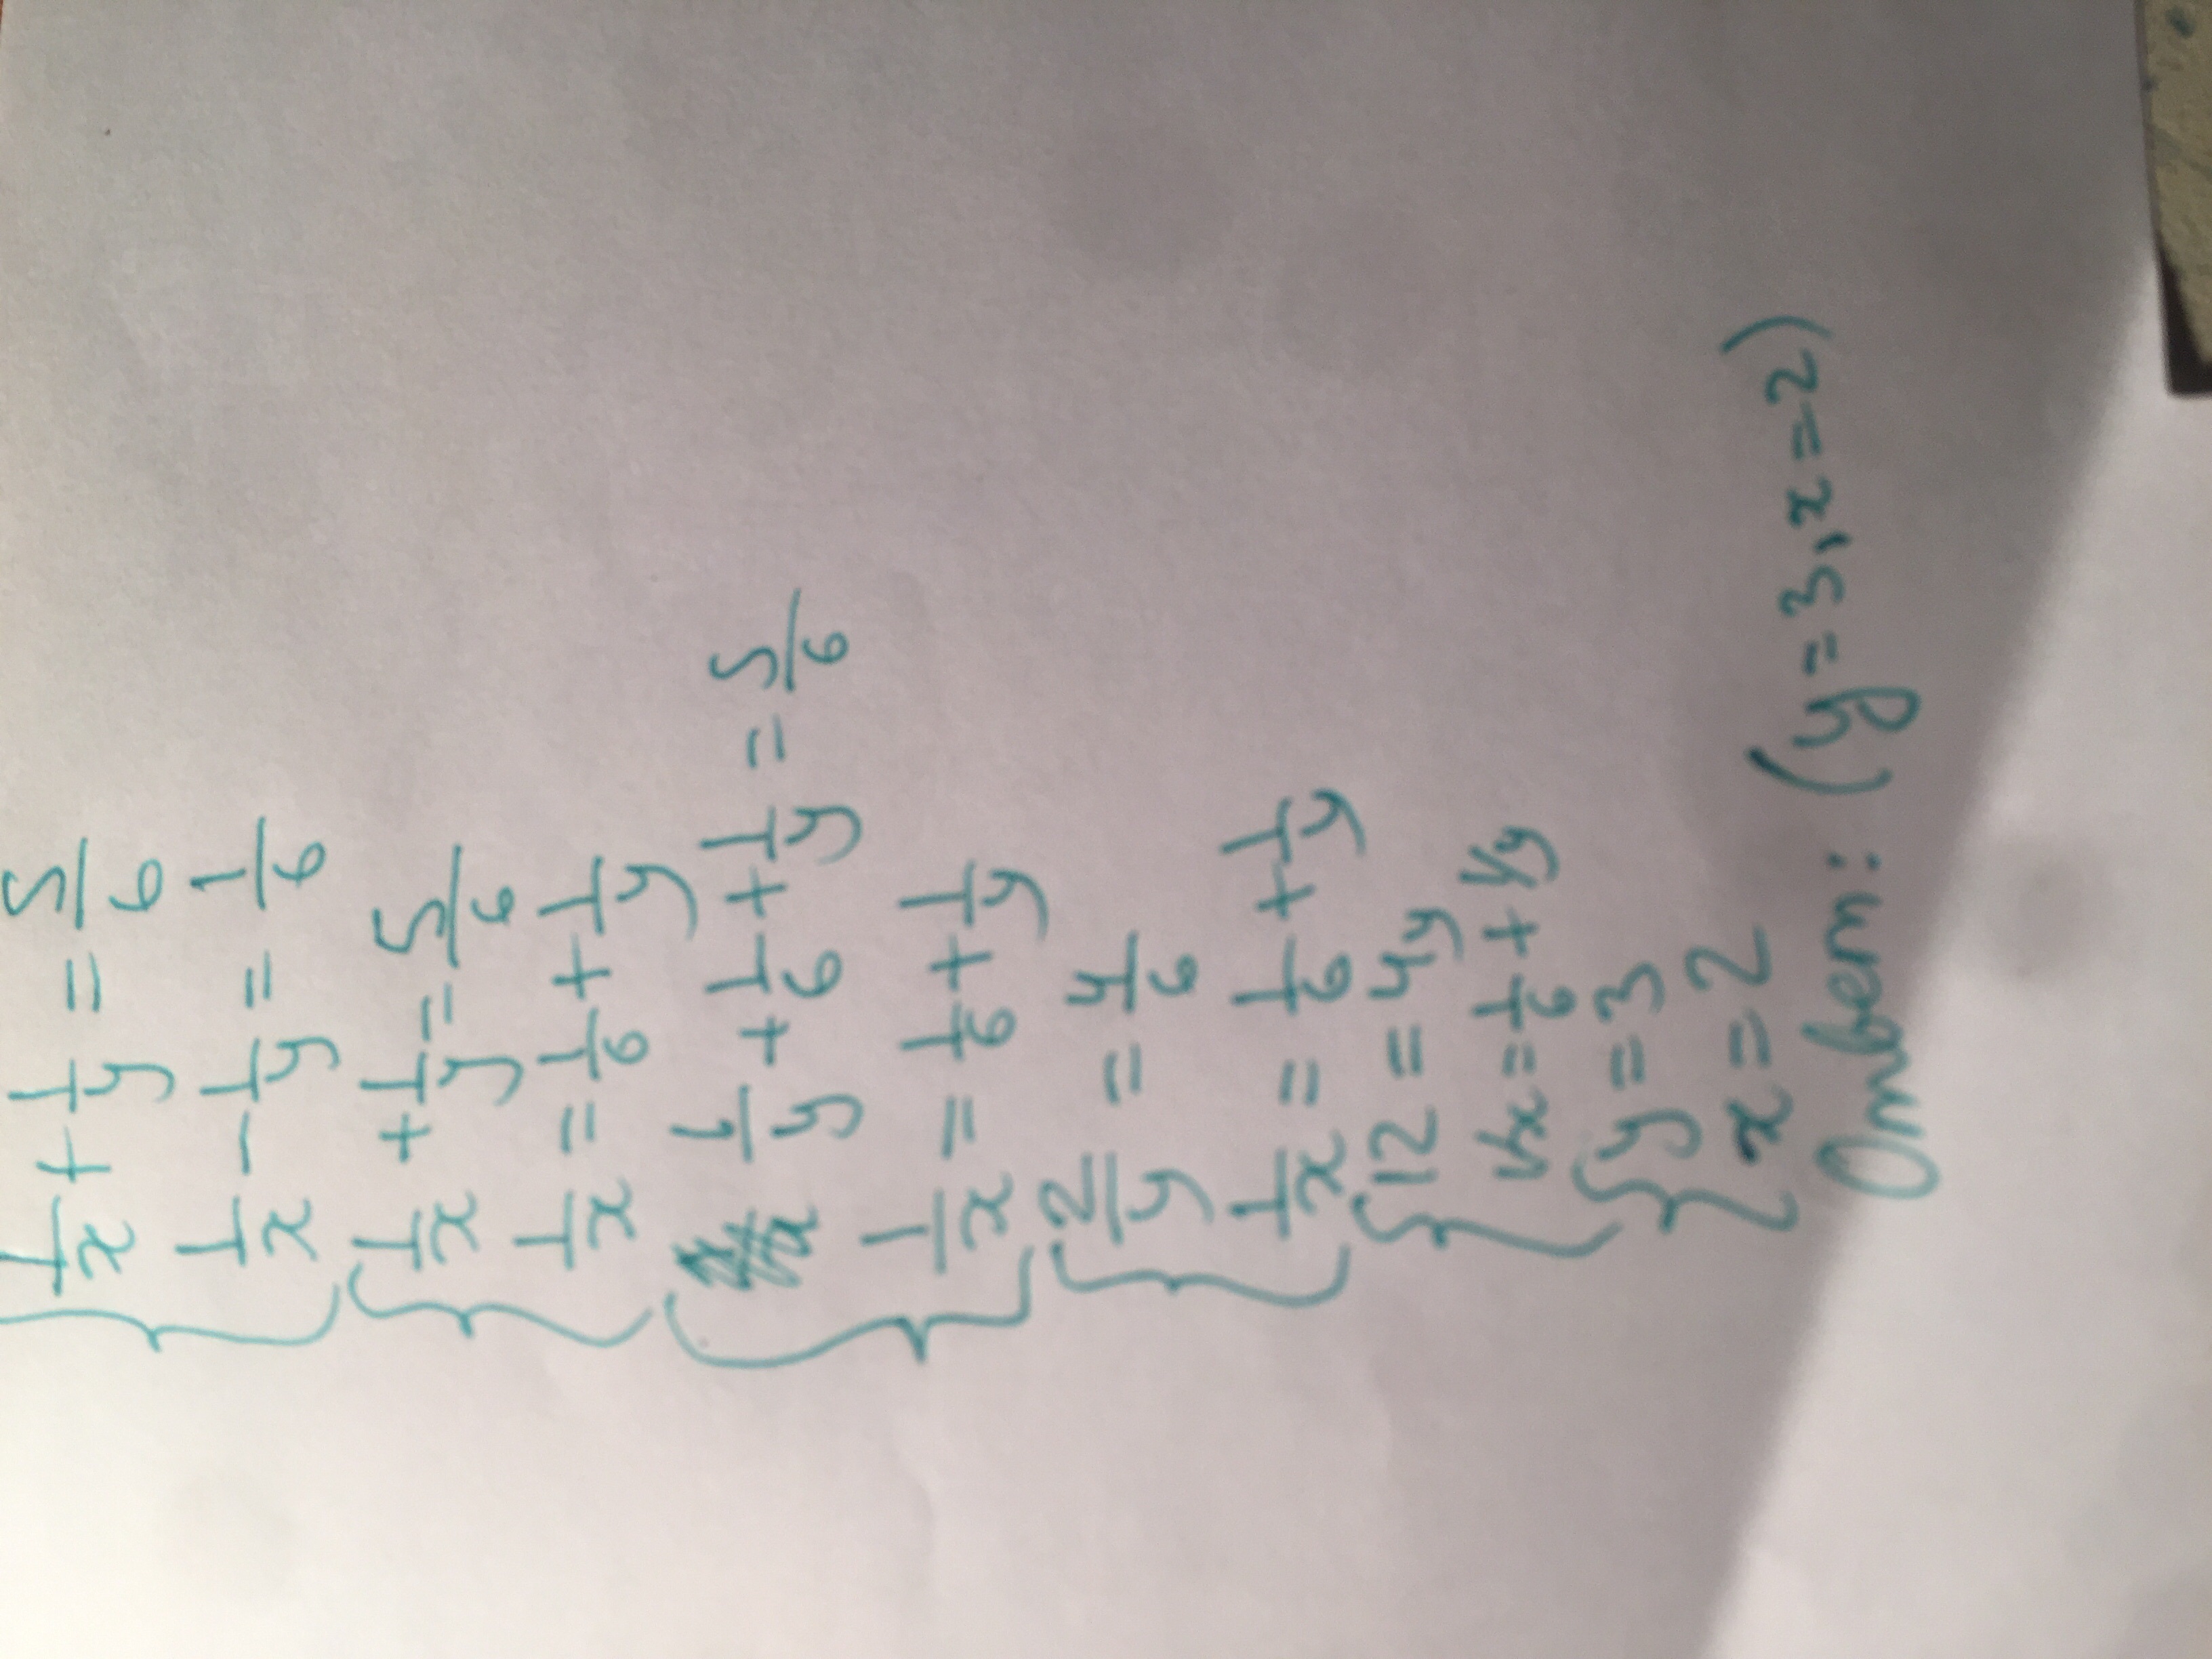 1/x + 1/y = 5/6
1/x - 1/y = 1/6
1/x + 1/y = 5/6
1/x = 1/6 + 1/y
1/y + 1/6 + 1/y = 5/6
1/x = 1/6 + 1/y
2/y = 4/6
1/x = 1/6 + 1/y
12 = 4y
1/x = 1/6 + 1/y
y = 3
x = 2
Ответ: (y = 3, x = 2)